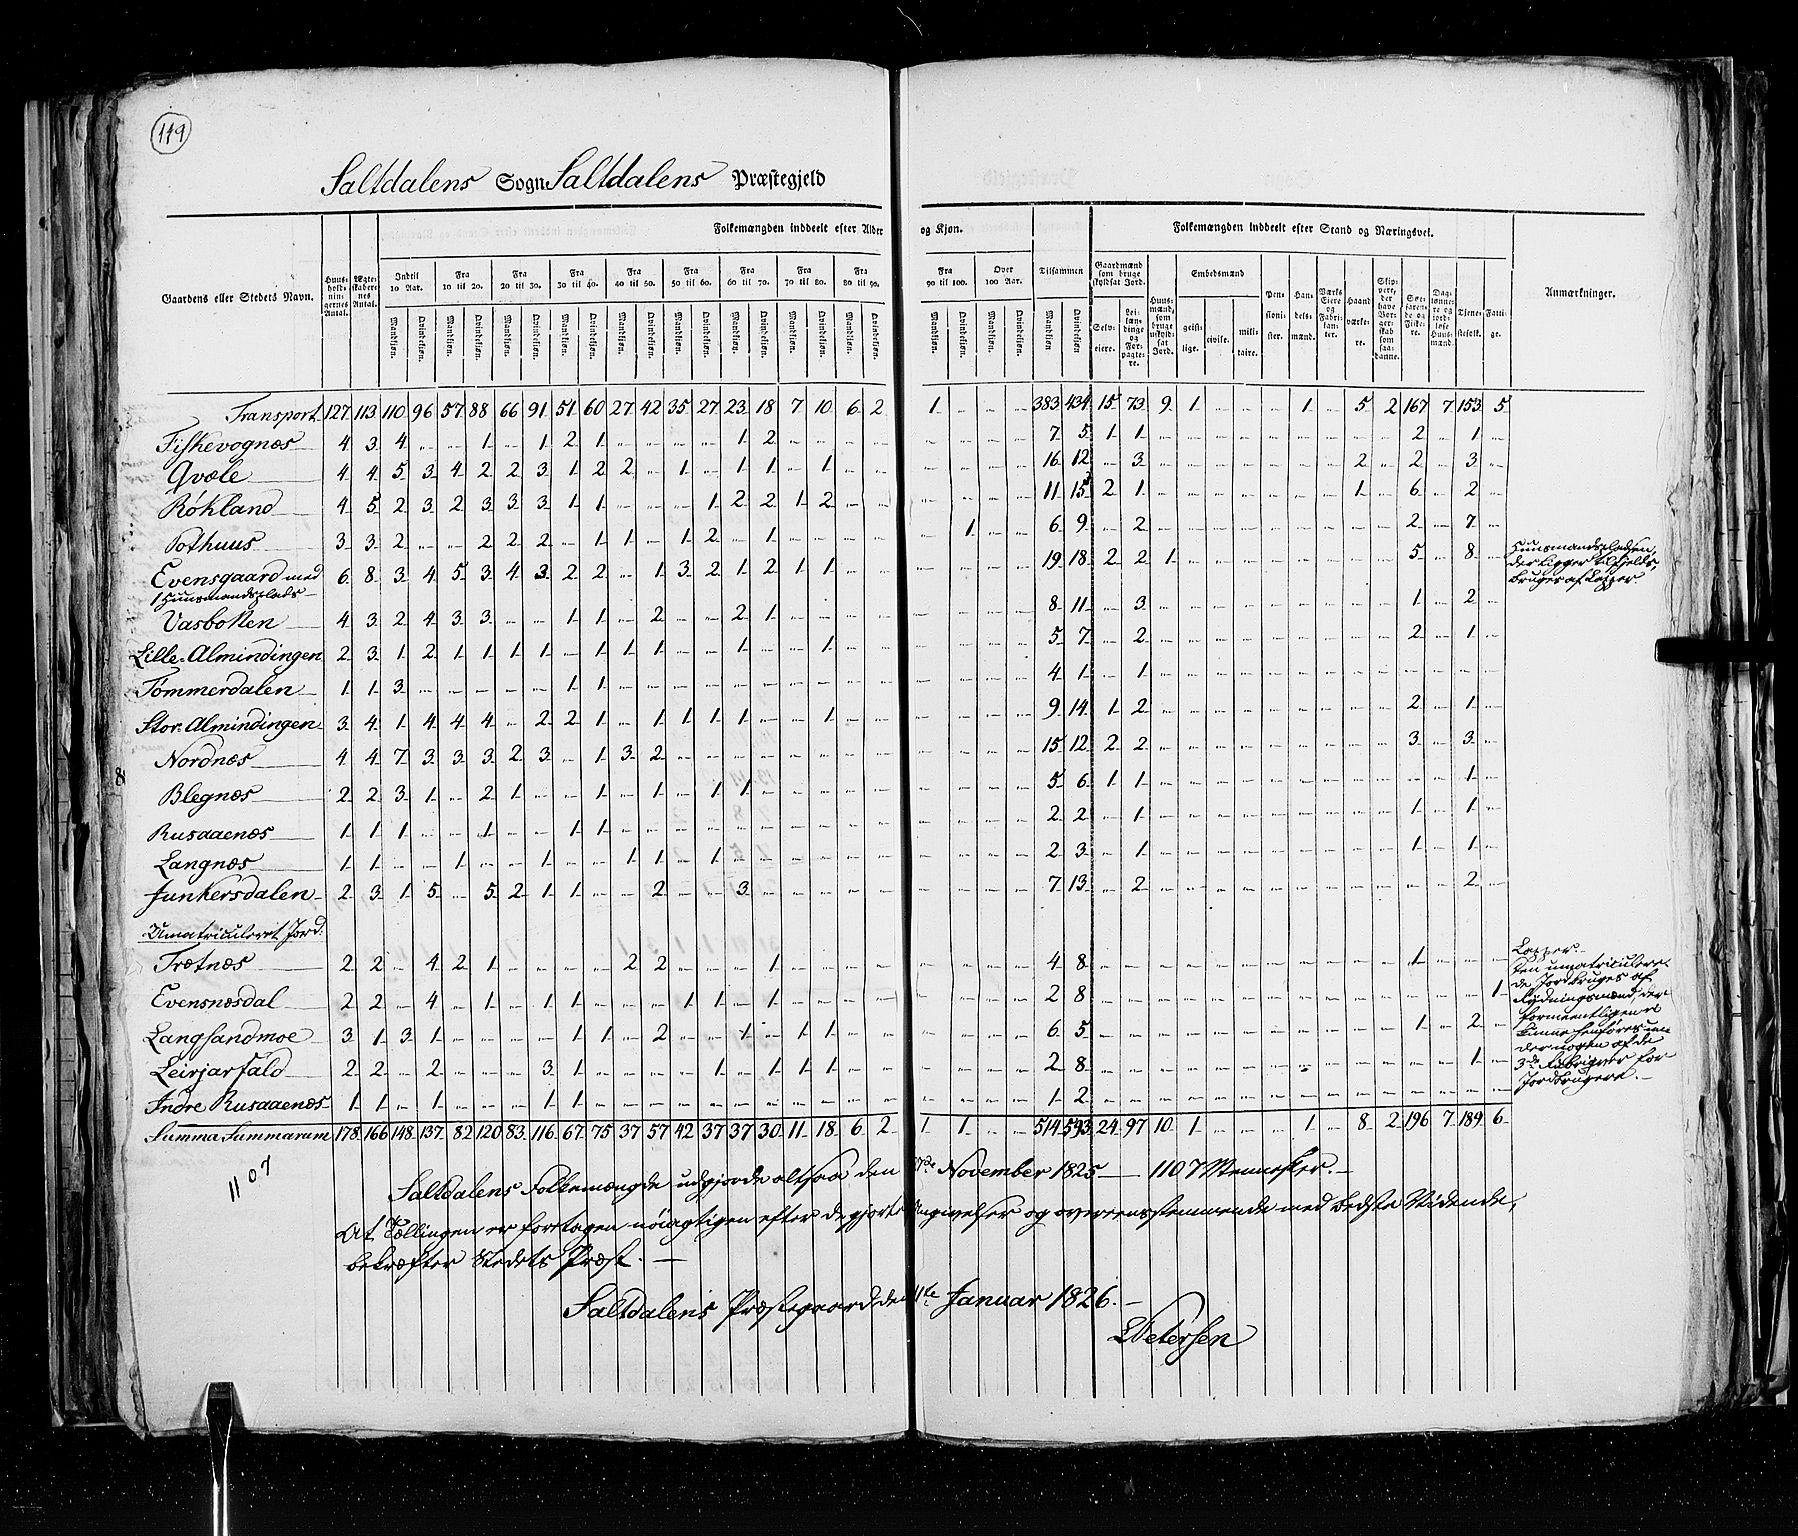 119
Saltdalens Sogn Saltdalens Præstegjeld
Gaardens eller Stedets Navn. Huusholdningernes Antal. Ægteskabernes Antal. Folkemængden inddeelt efter Alder og Kjøn. Tilsammen Folkemængden inddeelt efter Stand og Næringsvei. Anmærkninger.
Indtil 10 Aar. Fra 10 til 20. Fra 20 til 30. Fra 30 til 40. Fra 40 til 50. Fra 50 til 60. Fra 60 til 70. Fra 70 til 80. Fra 80 til 90. Fra 90 til 100. Over 100 Aar.
Gaardmænd som bruge skyldsat Jord. Selveiere. Leilændinge og Forpagtere. Huusmænd, som bruge uskyldsat Jord. Embedsmænd geistlige. civile. militaire. Pensionister. Handelsmænd. Værks Eiere og Fabrikanter. Haandværkere. Skippere, der have Borgerskab som saadanne. Søefarende og Fiskere. Dagslønnere og jordløse Huusmænd. Tjenestefolk. Fattige.
Mandkjøn. Qvindekjøn.
Transport 127 113 110 96 57 88 66 91 51 60 27 42 35 27 23 18 7 10 6 2 1 „ „ „ 383 434 15 73 9 1 „ „ „ 1 „ 5 2 167 7 153 5
Fiskevognæs 4 3 4 „ „ 1 „ 1 2 1 „ „ „ „ 1 2 „ „ „ „ „ „ „ „ 7 5 1 1 „ „ „ „ „ „ „ „ „ 2 „ 1 „
Qvæle 4 4 5 3 4 2 2 3 1 2 2 „ 1 „ 1 1 „ 1 „ „ „ „ „ „ 16 12 „ 3 „ „ „ „ „ „ „ 2 „ 2 „ 3 „
Røkland 4 5 2 3 2 3 3 3 1 1 „ „ „ 1 2 2 1 2 „ „ „ „ „ „ 11 15 2 1 „ „ „ „ „ „ „ 1 „ 6 „ 2 „
Pothuus 3 3 2 „ „ 2 2 2 „ 1 1 „ 1 2 „ 1 „ „ „ „ „ 1 „ „ 6 9 „ 2 „ „ „ „ „ „ „ „ „ 2 „ 7 „
Evensgaard med 6 8 3 4 5 3 4 3 2 2 „ 1 3 2 1 2 1 1 „ „ „ „ „ „ 19 18 2 2 1 „ „ „ „ „ „ „ „ 5 „ 8 „
1 Huusmandsplads
Huusmandspladsen,
der ligger tilfjelds,
bruges af Lapper
Vasbotten 4 3 2 4 3 3 „ „ 1 1 „ 2 „ „ 2 1 „ „ „ „ „ „ „ „ 8 11 „ 3 „ „ „ „ „ „ „ „ „ 1 „ 2 „
Lille-Almindingen 2 3 1 2 1 1 1 1 „ 1 1 1 „ „ 1 „ „ 1 „ „ „ „ „ „ 5 7 „ 2 „ „ „ „ „ „ „ „ „ 2 „ 1 „
Tømmerdalen 1 1 3 „ „ „ „ „ 1 1 „ „ „ „ „ „ „ „ „ „ „ „ „ „ 4 1 „ 1 „ „ „ „ „ „ „ „ „ „ „ „ „
Stor-Almindingen 3 4 1 4 4 4 „ 2 2 1 „ 1 1 1 1 „ „ 1 „ „ „ „ „ „ 9 14 1 2 „ „ „ „ „ „ „ „ „ 2 „ 1 „
Nordnæs 4 4 7 3 3 3 2 3 „ 1 3 2 „ „ „ „ „ „ „ „ „ „ „ „ 15 12 2 2 „ „ „ „ „ „ „ „ „ 3 „ 3 „
Blegnæs 2 2 3 1 „ 2 1 „ „ 1 „ 1 „ 1 1 „ „ „ „ „ „ „ „ „ 5 6 1 1 „ „ „ „ „ „ „ „ „ „ „ 1 „
Rusaaenæs 1 1 1 „ „ 1 „ „ 1 1 „ „ „ „ „ „ „ „ „ „ „ „ „ „ 2 2 „ 1 „ „ „ „ „ „ „ „ „ 1 „ 1 „
Langnæs 1 1 „ „ 1 „ „ 1 „ „ 1 1 „ 1 „ „ „ „ „ „ „ „ „ „ 2 3 „ 1 „ „ „ „ „ „ „ „ „ 1 „ 1 „
Junkersdalen 2 3 1 5 „ 5 2 1 1 „ „ 2 „ „ 3 „ „ „ „ „ „ „ „ „ 7 13 „ 2 „ „ „ „ „ „ „ „ „ „ „ 2 „
Umatriculeret Jord.
Trætnæs 2 2 „ 4 2 1 „ „ „ „ 2 2 „ „ „ 1 „ „ „ „ „ „ „ „ 4 8 „ „ „ „ „ „ „ „ „ „ „ 1 „ „ „
Evensnæsdal 2 2 „ 4 „ 1 „ 1 1 „ „ „ 1 1 „ 1 „ „ „ „ „ „ „ „ 2 8 „ „ „ „ „ „ „ „ „ „ „ „ „ „ 1
Langsandmoe 3 1 3 1 „ „ „ „ 1 1 „ 2 „ „ 1 „ 1 1 „ „ „ „ „ „ 6 5 „ „ „ „ „ „ „ „ „ „ „ 1 „ 2 „
Leirjarfald 2 2 „ 2 „ „ „ 3 1 „ „ „ „ 1 „ 1 1 1 „ „ „ „ „ „ 2 8 „ „ „ „ „ „ „ „ „ „ „ „ „ 1 „
Indre Rusaaenæs 1 1 „ 1 „ „ „ 1 1 „ „ „ „ „ „ „ „ „ „ „ „ „ „ „ 1 2 „ „ „ „ „ „ „ „ „ „ „ „ „ „ „
Lapper.
Den umatriculere-
de Jord bruges af
Rydningsmænd, der
formeentligen ei
kunne henføres un-
der nogen af de
3de Rubriquer for
Jordbrugere.
Summa Summarum 178 166 148 137 82 120 83 116 67 75 37 57 42 37 37 30 11 18 6 2 1 1 „ „ 514 593 24 97 10 1 „ „ „ 1 „ 8 2 196 7 189 6
1107
Saltdalens Folkemængde udgjorde altsaa den 27de November 1825 — 1107 Mennesker.
At Tællingen er foretagen nöiagtigen efter de gjorte Angivelser og overeensstemmende med bedste Vidende,
bekræfter Stedets Præst.
Saltdalens Præstegaard den 11te Januar 1826.
L Petersen